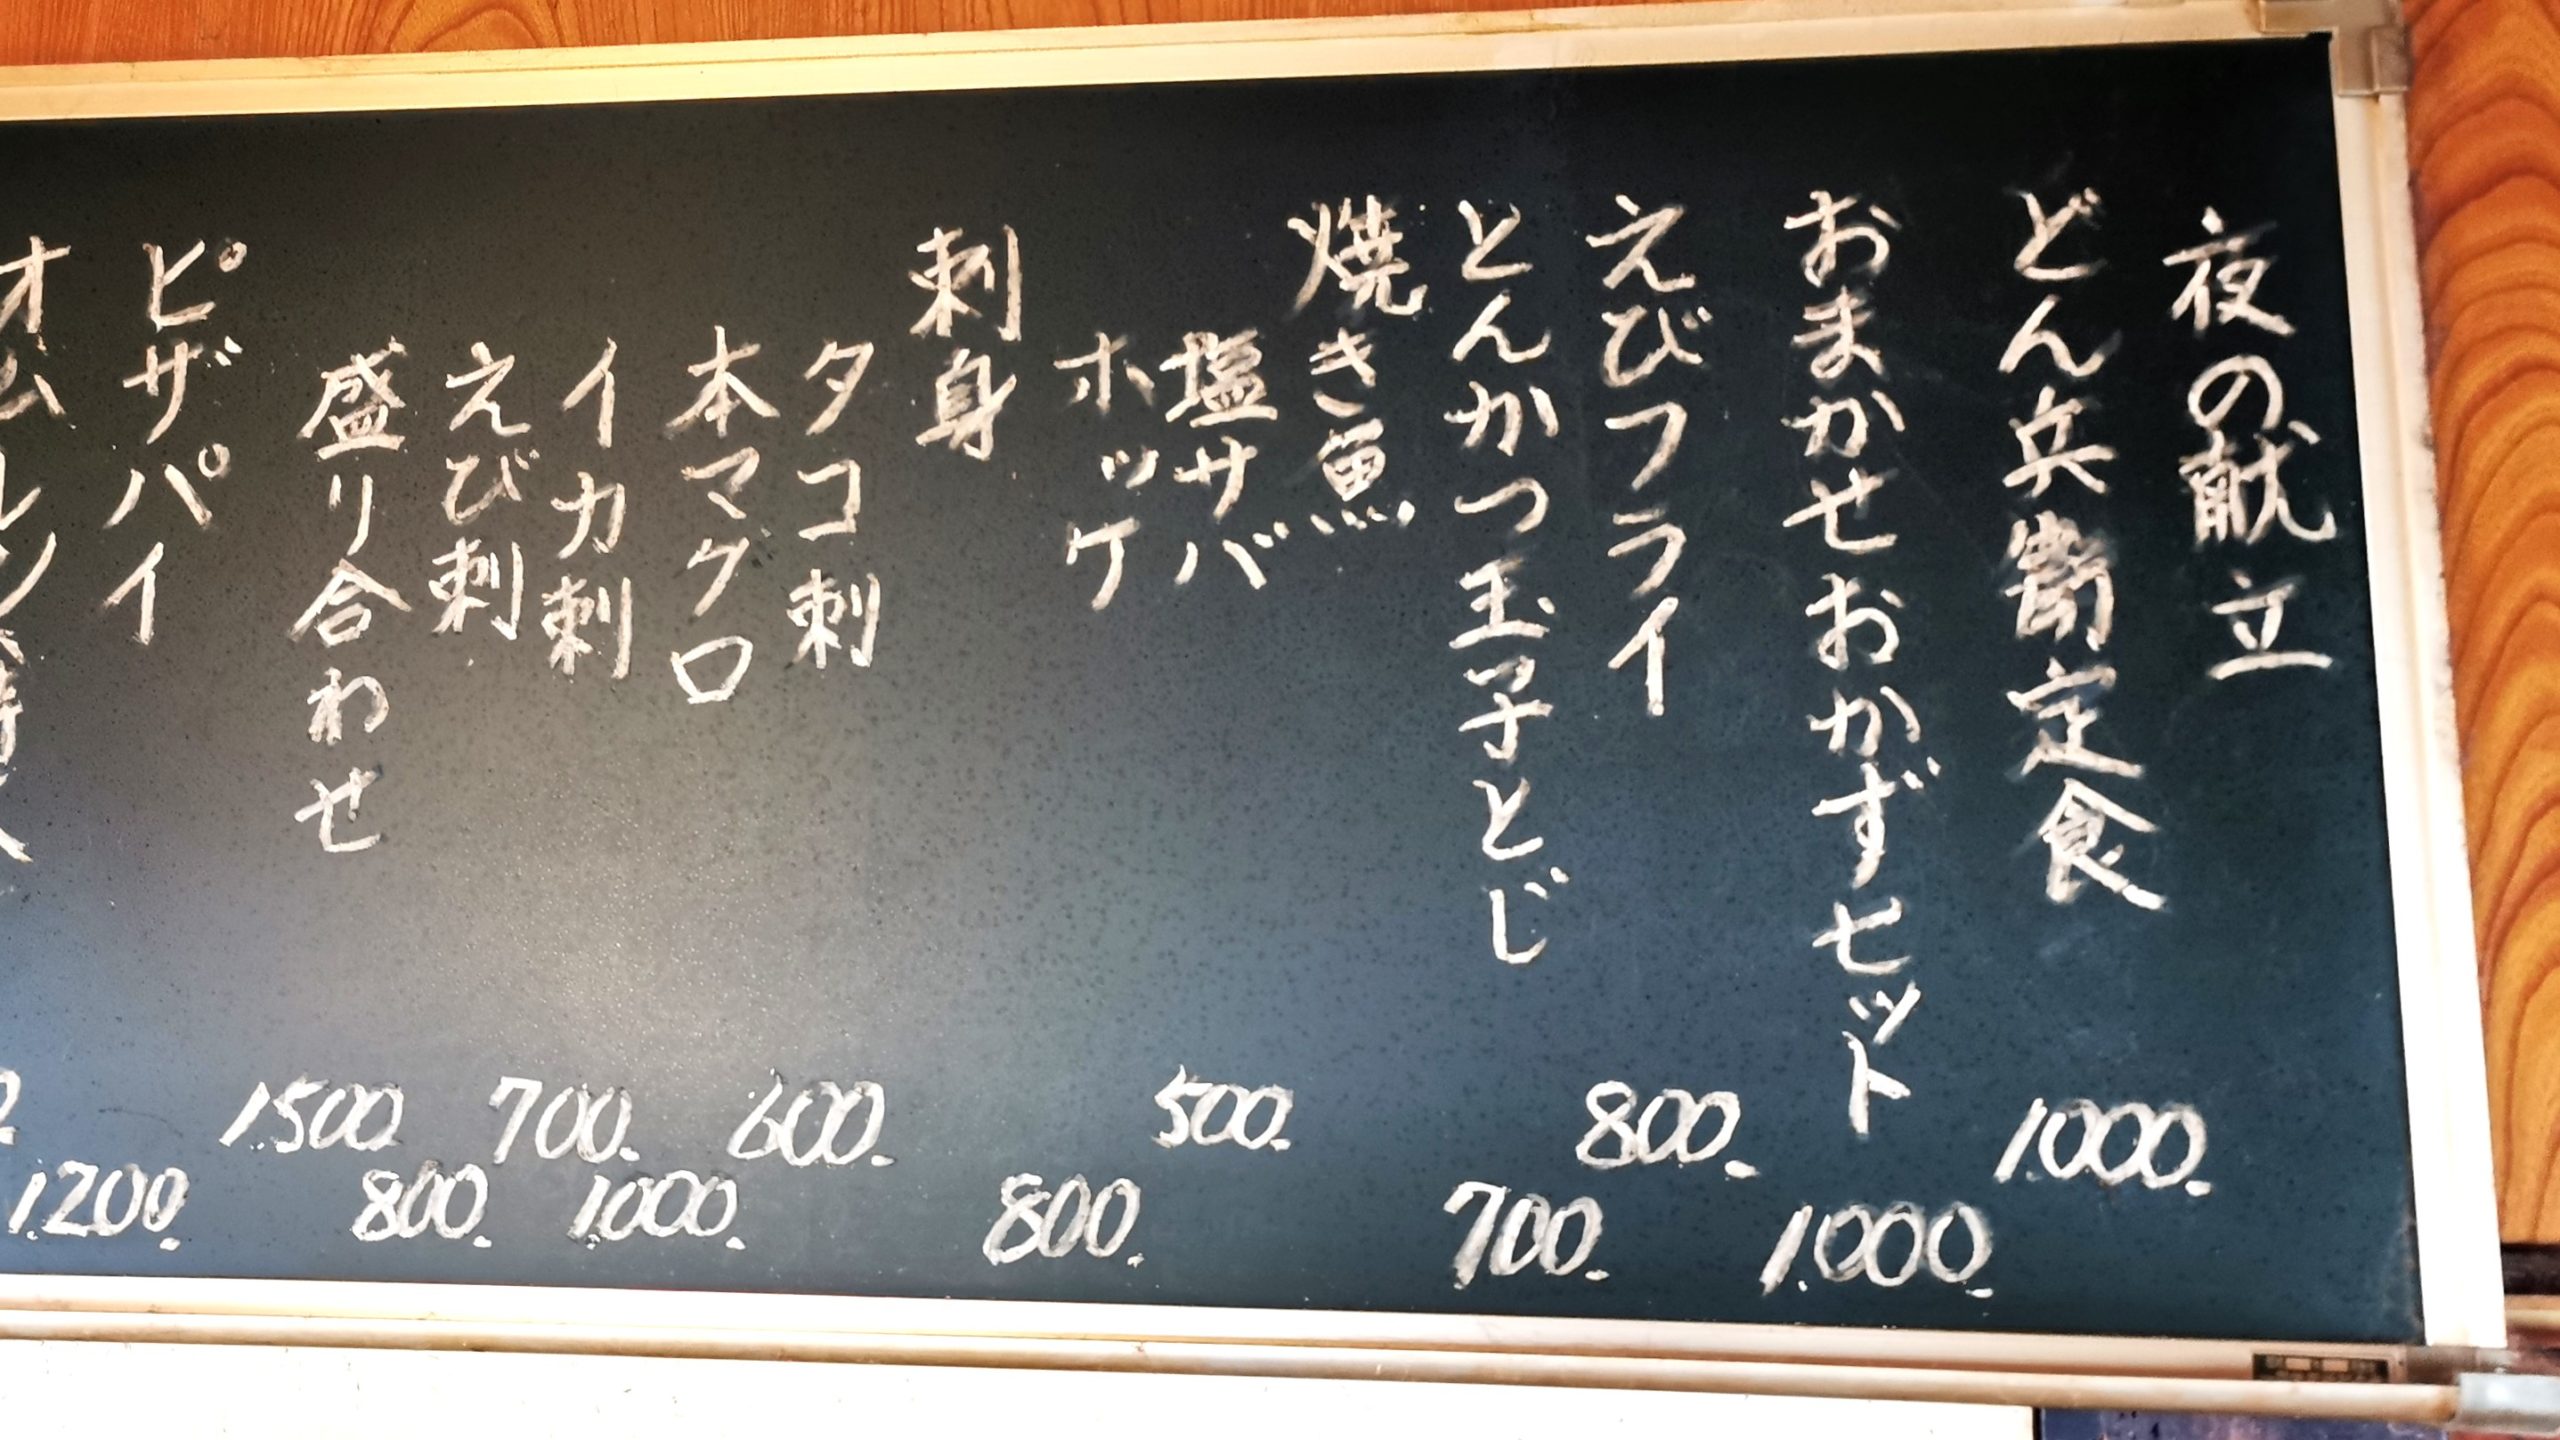 夜の献立
どん兵衛定食 1000.
おまかせおかずセット 1000.
えびフライ 800.
とんかつ玉子とじ 700.
焼き魚
塩サバ 500.
ホッケ 800.
刺身
タコ刺 600.
本マグロ 1000.
イカ刺 700.
えび刺 800.
盛り合わせ 1500
ピザパイ 1200.
オムレツ